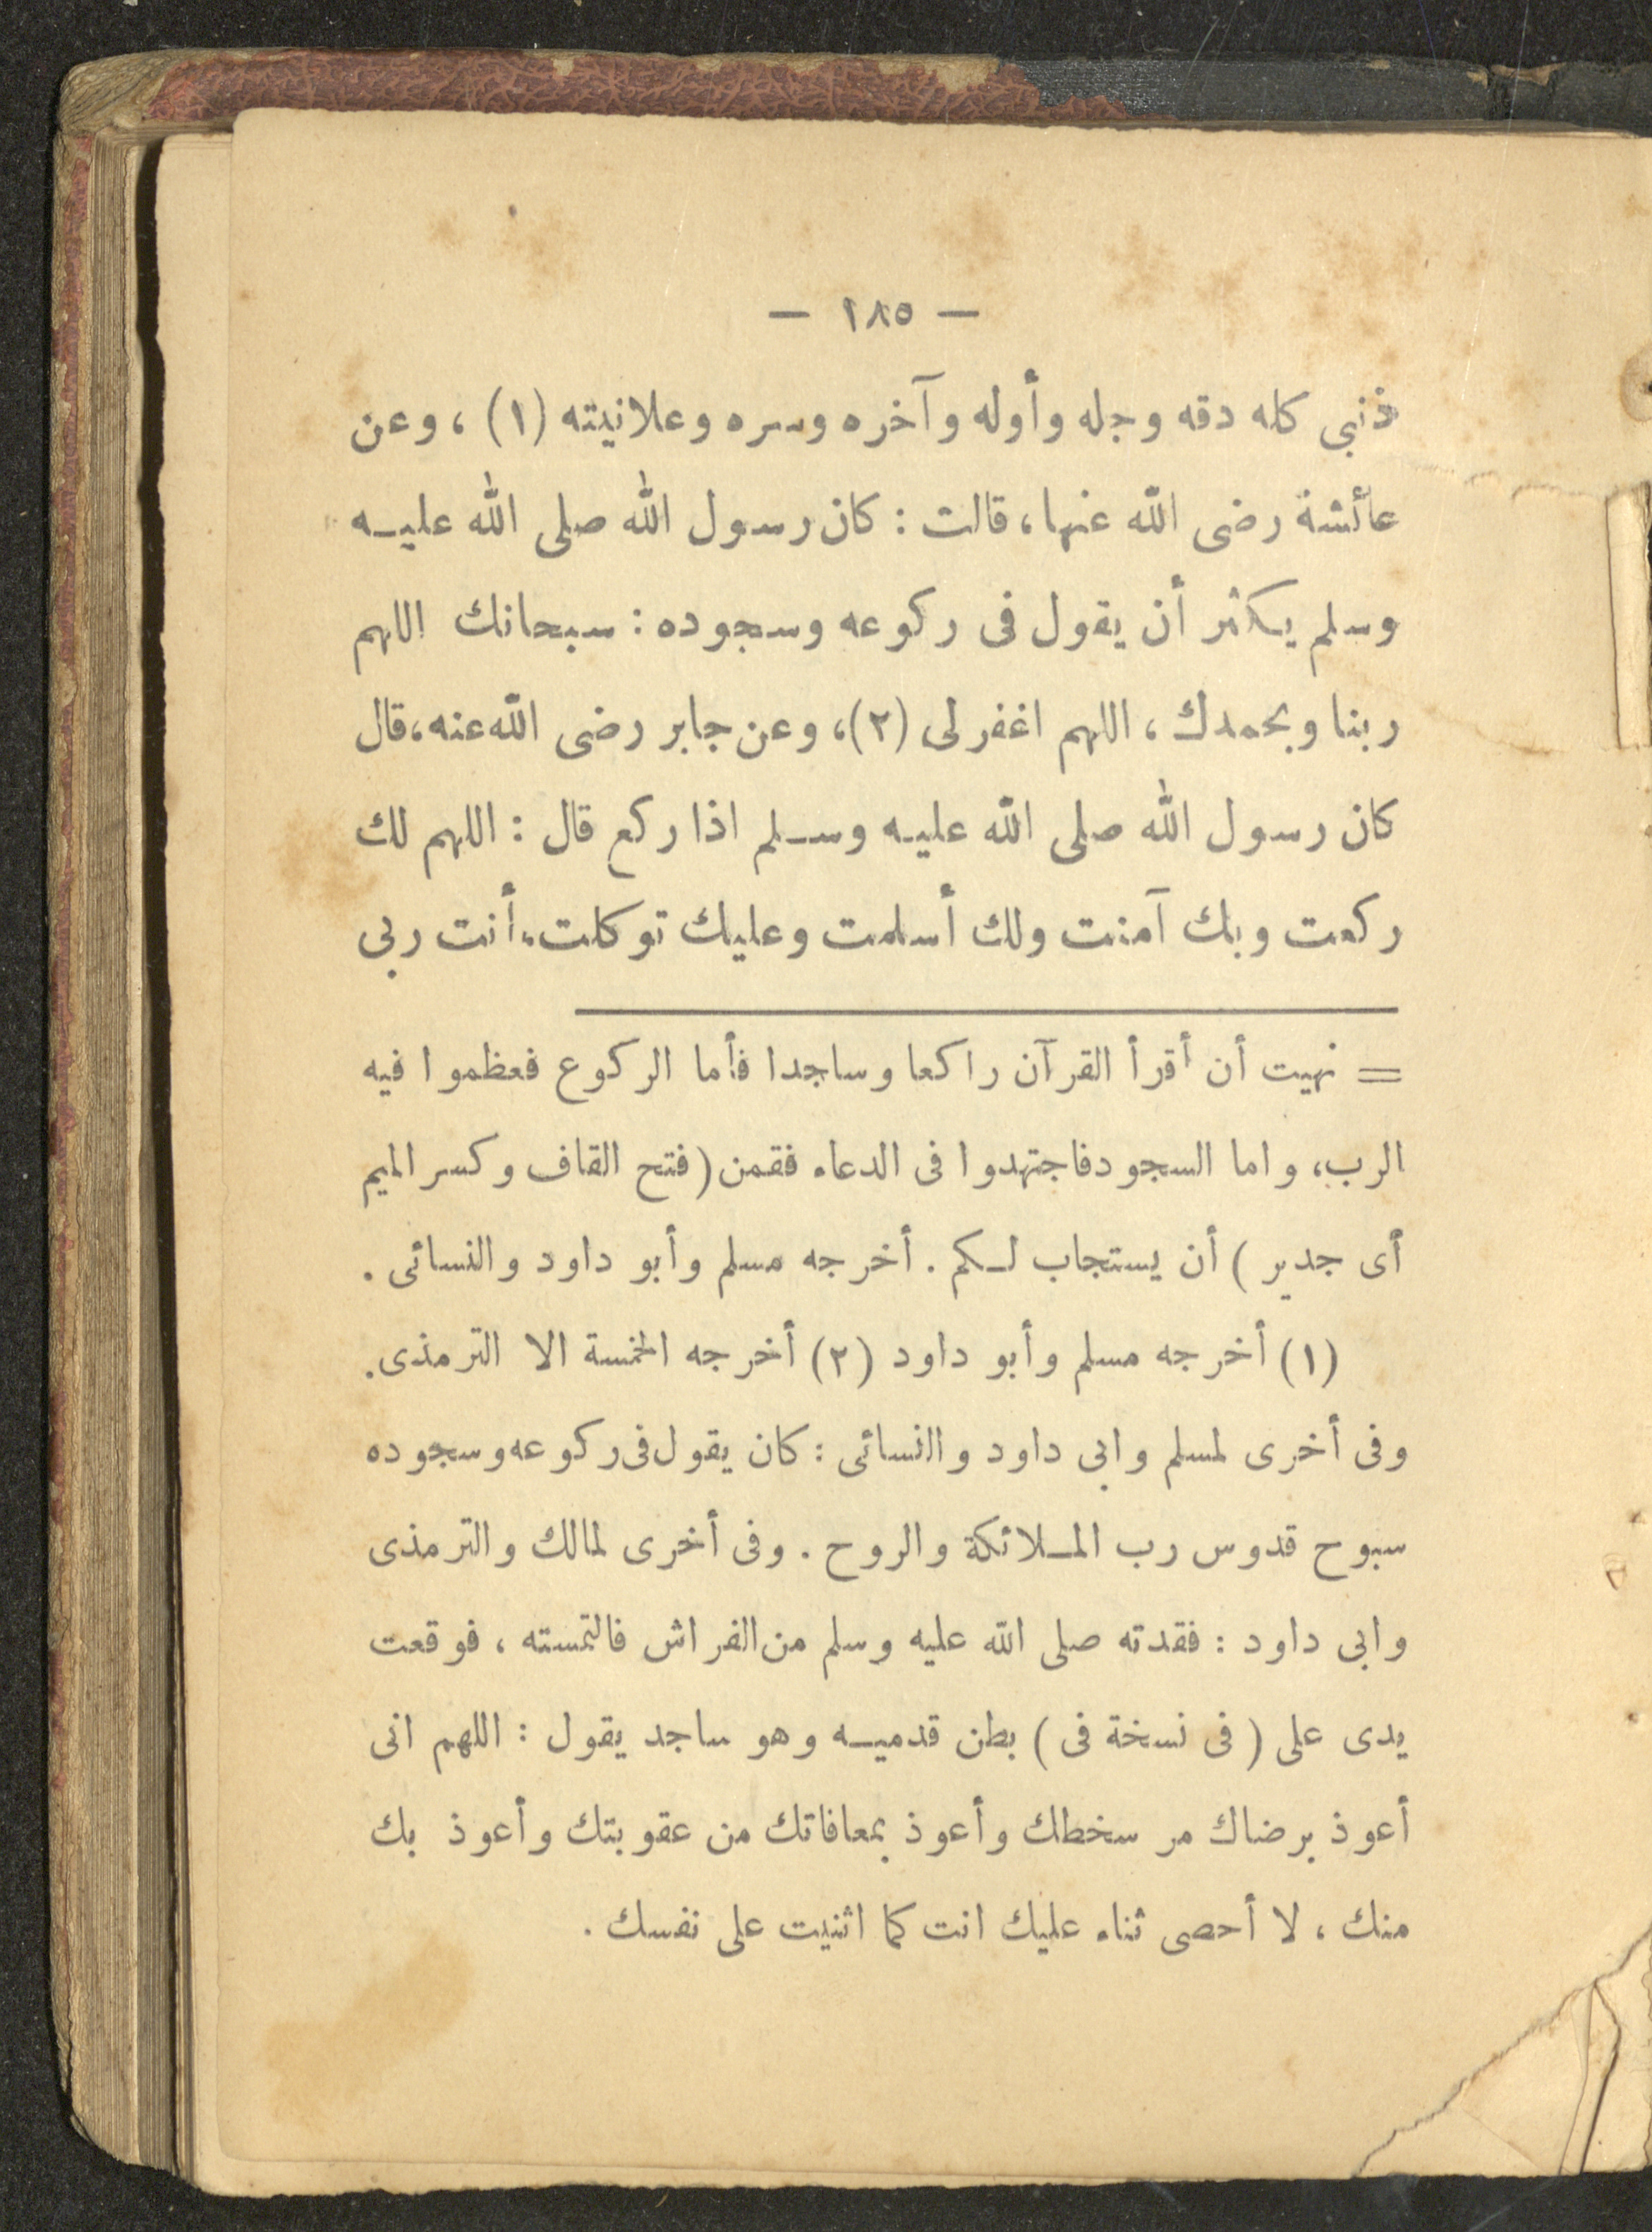 — ١٨٥ —
ذنبى كله دقه وجله وأوله وآخره وسره وعلانيته (١) ، وعن
عائشة رضى الله عنها، قالت : كان رسول الله صلى الله عليه
وسلم يكثر أن يقول فى ركوعه وسجوده : سبحانك اللهم
ربنا وبحمدك ، اللهم اغفرلى (٢)، وعن جابر رضى الله عنه، قال
كان رسول الله صلى الله عليه وسلم اذا ركع قال : اللهم لك
ركعت وبك آمنت ولك أسلمت وعليك توكلت، أنت ربى
= نهيت أن أقرأ القرآن راكعا وساجدا فأما الركوع فعظموا فيه
الرب، واما السجود فاجتهدوا فى الدعاء فقمن (فتح القاف وكسر الميم
أى جدير ) أن يستجاب لكم . أخرجه مسلم وأبو داود والنسائى .
(١) أخرجه مسلم وأبو داود (٢) أخرجه الخمسة الا الترمذى.
وفى أخرى لمسلم وابى داود والنسائى : كان يقول فى ركوعه وسجوده
سبوح قدوس رب الملائكة والروح . وفى أخرى لمالك والترمذى
وابى داود : فقدته صلى الله عليه وسلم من الفراش فالتمسته ، فوقعت
يدى على ( فى نسخة فى ) بطن قدميه وهو ساجد يقول : اللهم انى
أعوذ برضاك مر سخطك وأعوذ بمعافاتك من عقوبتك وأعوذ بك
منك ، لا أحصى ثناء عليك انت كما اثنيت على نفسك .